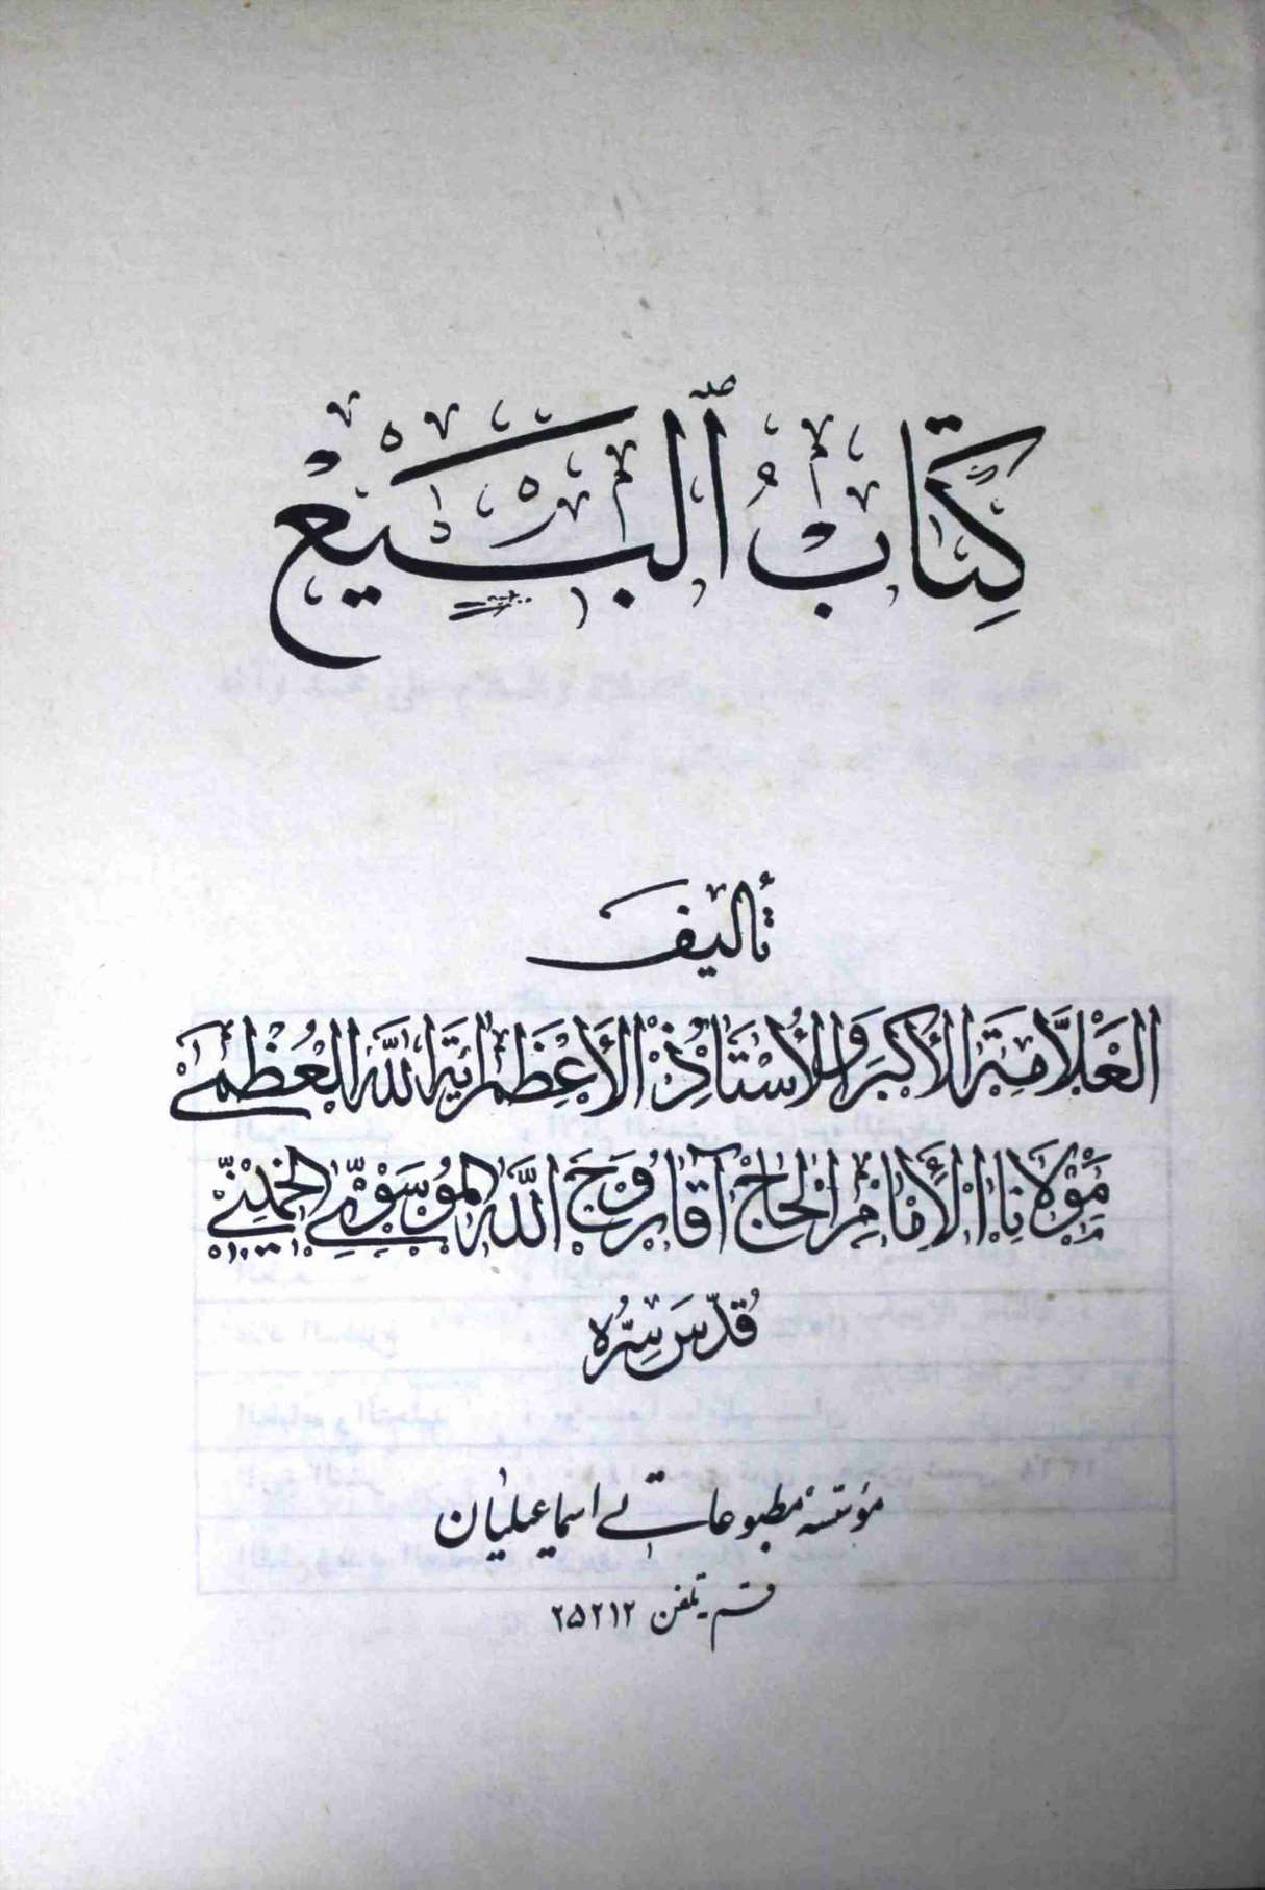 كِتَابُ ٱلْبَيْعْ
تأليف
العَلاَّمِةِ الأَكبَرِ وَالأُسْتَاذِ الأَعظَم ايَةِ اللَّهِ العُظْمىٰ
مَوْلانَا الأِمَامِ الحَاجّ آقَا رُوحَ اللَّهِ المُوسَوِيّ الخمَينِيّ
قُدّسَ سِرُّه
مؤسّسهٔ مطبوعاتی اسماعیلیان
قم ـ تلفن ۲۵۲۱۲